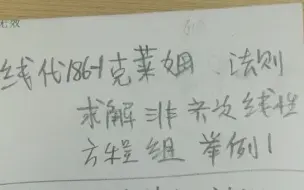 线代186-1克莱姆法则
求解非齐次线性
方程组 举例1